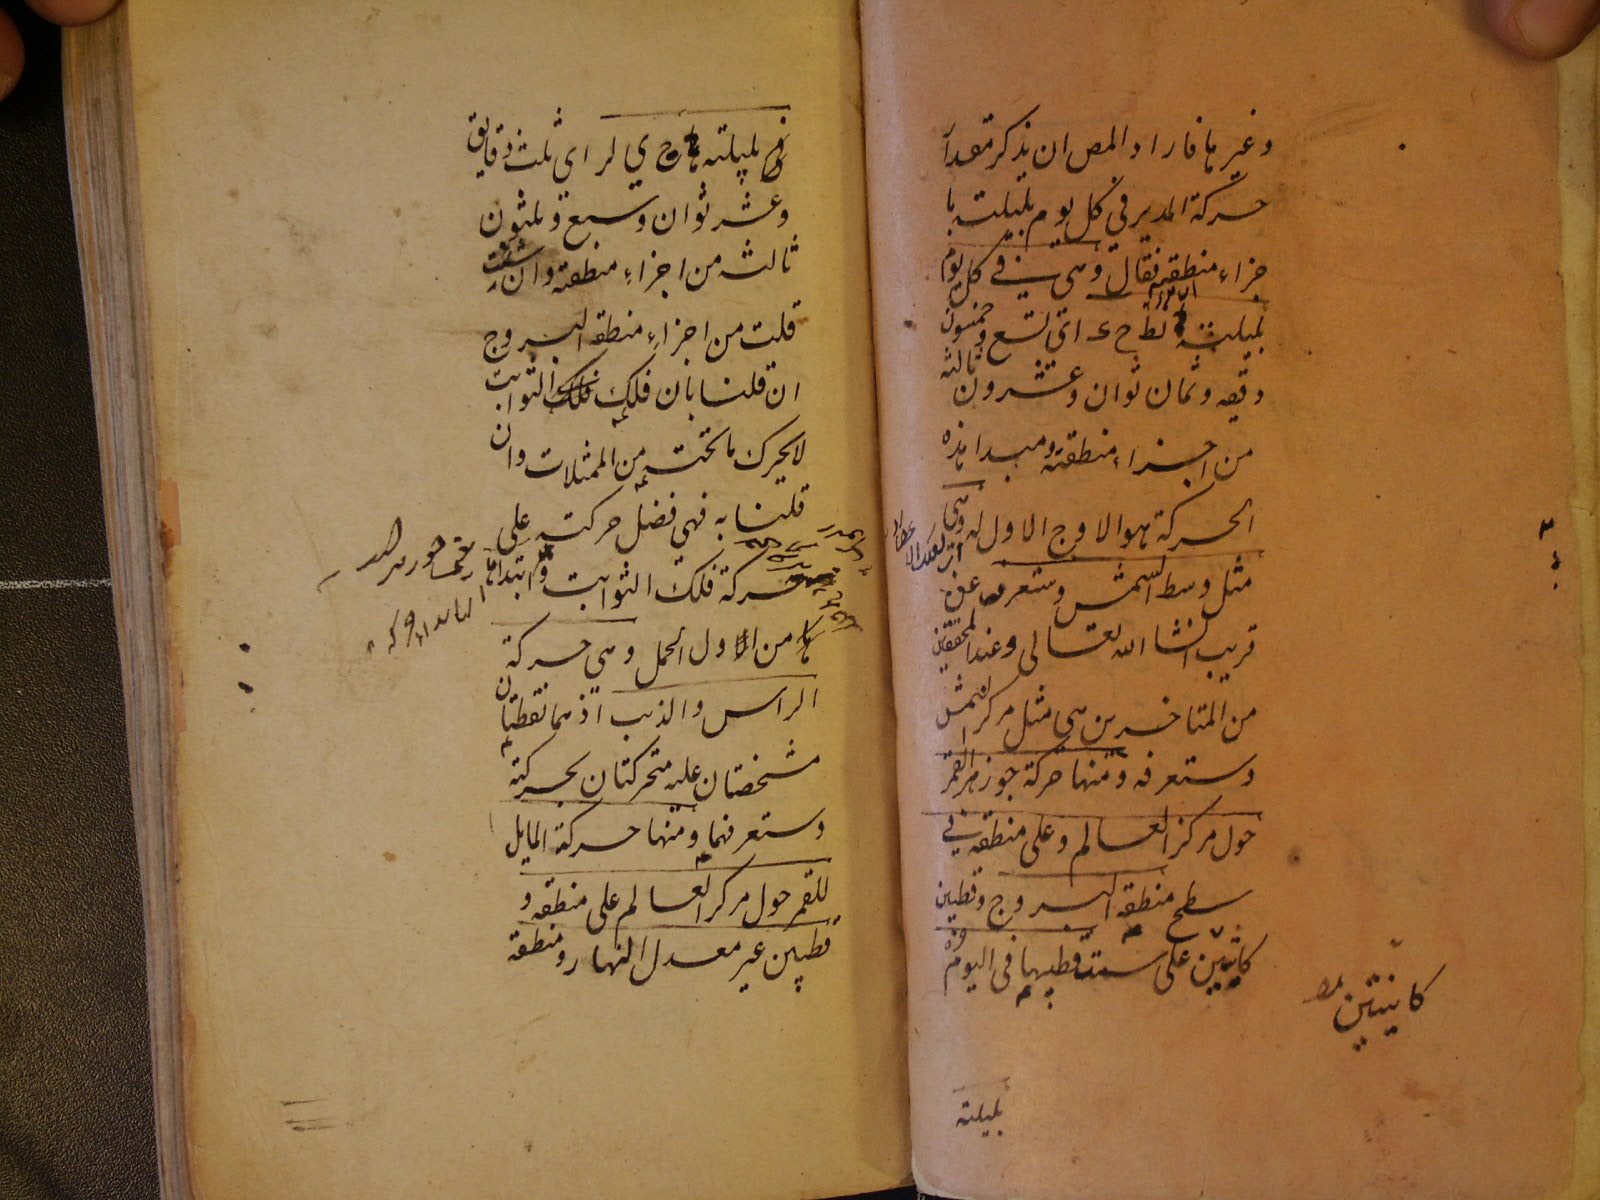 وغيرها فاراد المص ان يذكر مقدار
حركة المدير في كل يوم بليلت با
جزاء منطقته فقال وهي في كل يوم
بليلته نط ح ك اي تسع وخمسون
دقيقه وثمان ثوان وعشرون ثالثه
من اجزاء منطقته ومبدا هذه
الحركة هو الاوج الاول له وهي
مثل وسط الشمس وستعرفه عن
قريب انشا الله تعالى وعند المحققين
من المتاخرين هي مثل مركز الشمس
وستعرفه ومنها حركة جوزهر القمر
حول مركز العالم وعلى منطقه في
سطح منطقه البروج وقطبين
كاينين على سمت قطبيها في اليوم
كاينتين
بليلته
بليلته ج ي لز اي ثلث دقايق
وعشر ثوان وسبع وثلثون
ثالثه من اجزاء منطقته وان شئت
قلت من اجزاء منطقه البروج
ان قلنا بان فلك الثوابت
لا يحرك ما تحته من الممثلات وان
قلنا به فهي فضل حركته على
حركة فلك الثوابت وابتداءها
من اول الحمل وهي حركة
الراس والذنب اذ هما نقطتان
مشخصتان عليه متحركتان بحركته
وستعرفهما ومنها حركة المايل
للقمر حول مركز العالم على منطقه و
قطبين غير معدل النهار ومنطقه